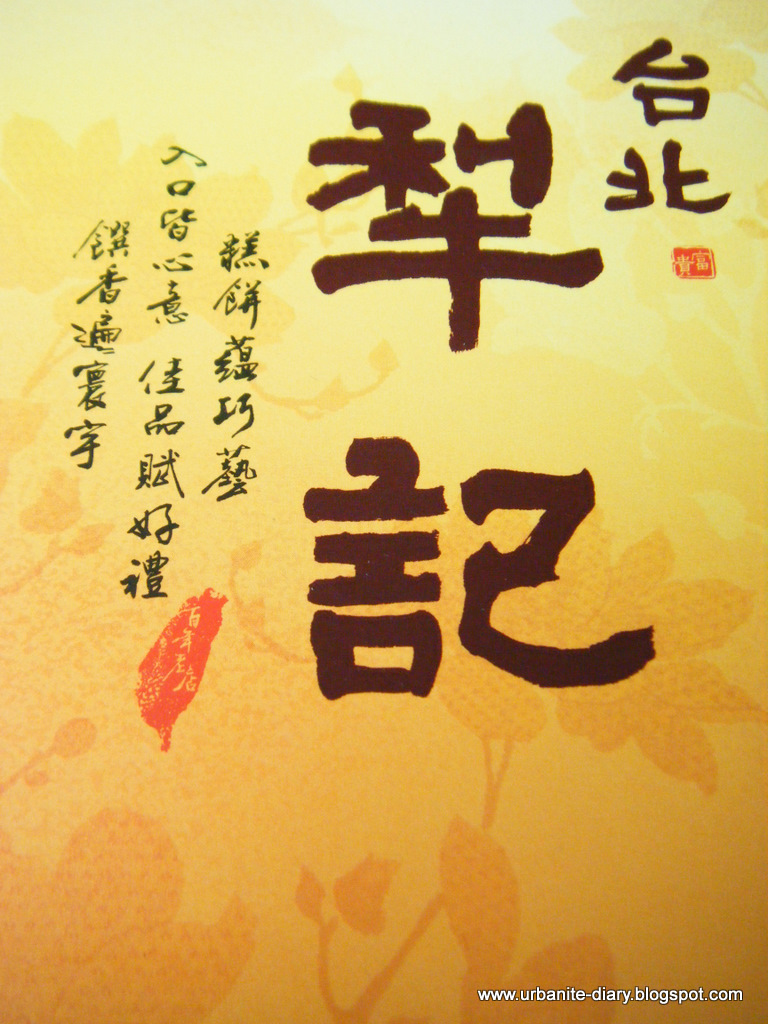 台北
富貴
犁記
糕餅蘊巧藝
入口皆心意 佳品賦好禮
饌香遍寰宇
百年老店
www.urbanite-diary.blogspot.com